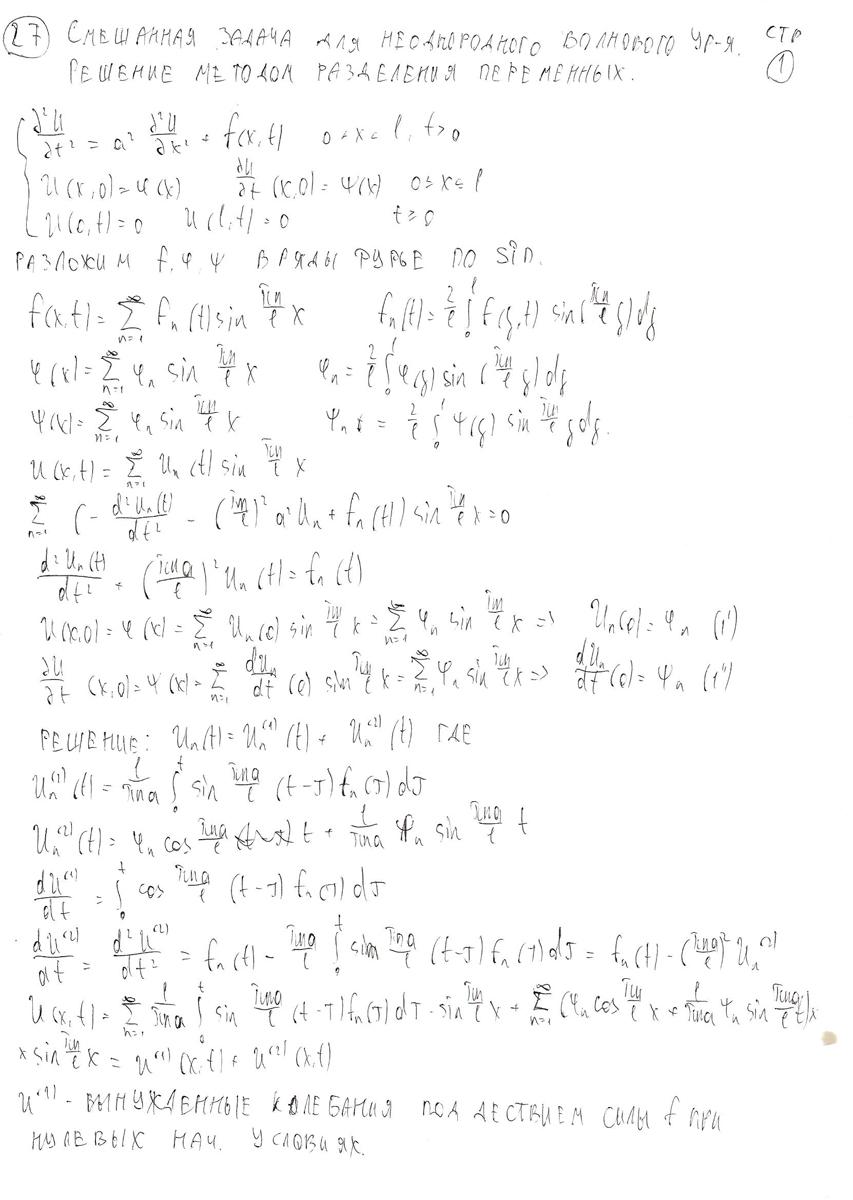 27 СМЕШАННАЯ ЗАДАЧА ДЛЯ НЕОДНОРОДНОГО ВОЛНОВОГО УР-Я. СТР 1
РЕШЕНИЕ МЕТОДОМ РАЗДЕЛЕНИЯ ПЕРЕМЕННЫХ.
∂²U/∂t² = a² ∂²U/∂x² + f(x,t) 0<x<l, t>0
U(x,0)=φ(x) ∂U/∂t (x,0)=ψ(x) 0≤x≤l
U(0,t)=0 U(l,t)=0 t≥0
РАЗЛОЖИМ f, φ, ψ В РЯДЫ ФУРЬЕ ПО sin.
f(x,t)=∑_{n=1}^∞ fₙ(t) sin πn/l x fₙ(t)= 2/l ∫₀ˡ f(ξ,t) sin(πn/l ξ)dξ
φ(x)=∑_{n=1}^∞ φₙ sin πn/l x φₙ= 2/l ∫₀ˡ φ(ξ) sin (πn/l ξ)dξ
ψ(x)=∑_{n=1}^∞ ψₙ sin πn/l x ψₙ = 2/l ∫₀ˡ ψ(ξ) sin πn/l ξdξ.
U(x,t)=∑_{n=1}^∞ Uₙ(t) sin πn/l x
∑_{n=1}^∞ (- d²Uₙ(t)/dt² - (πn/l)² a² Uₙ + fₙ(t)) sin πn/l x=0
d²Uₙ(t)/dt² + (πna/l)² Uₙ(t)=fₙ(t)
U(x,0)=φ(x)=∑_{n=1}^∞ Uₙ(0) sin πn/l x=∑_{n=1}^∞ φₙ sin πn/l x => Uₙ(0)=φₙ (1')
∂U/∂t (x,0)=ψ(x)=∑_{n=1}^∞ dUₙ/dt (0) sin πn/l x=∑_{n=1}^∞ ψₙ sin πn/l x => dUₙ/dt (0)=ψₙ (1")
РЕШЕНИЕ: Uₙ(t)=Uₙ⁽¹⁾(t)+ Uₙ⁽²⁾(t) ГДЕ
Uₙ⁽¹⁾(t)= l/πna ∫₀ᵗ sin πna/l (t-τ)fₙ(τ)dτ
Uₙ⁽²⁾(t)= φₙ cos πna/l t + l/πna ψₙ sin πna/l t
dU⁽¹⁾/dt = ∫₀ᵗ cos πna/l (t-τ) fₙ(τ)dτ
dU⁽²⁾/dt = d²U⁽²⁾/dt² = fₙ(t) - πna/l ∫₀ᵗ sin πna/l (t-τ)fₙ(τ)dτ = fₙ(t)-(πna/l)² Uₙ⁽¹⁾
U(x,t)=∑_{n=1}^∞ l/πna ∫₀ᵗ sin πna/l (t-τ)fₙ(τ)dτ · sin πn/l x + ∑_{n=1}^∞ (φₙ cos πn/l x + l/πna ψₙ sin πna/l t)×
× sin πn/l x = U⁽¹⁾(x,t)+U⁽²⁾(x,t)
U⁽¹⁾ - ВЫНУЖДЕННЫЕ КОЛЕБАНИЯ ПОД ДЕСТВИЕМ СИЛЫ f ПРИ
НУЛЕВЫХ НАЧ. УСЛОВИЯХ.